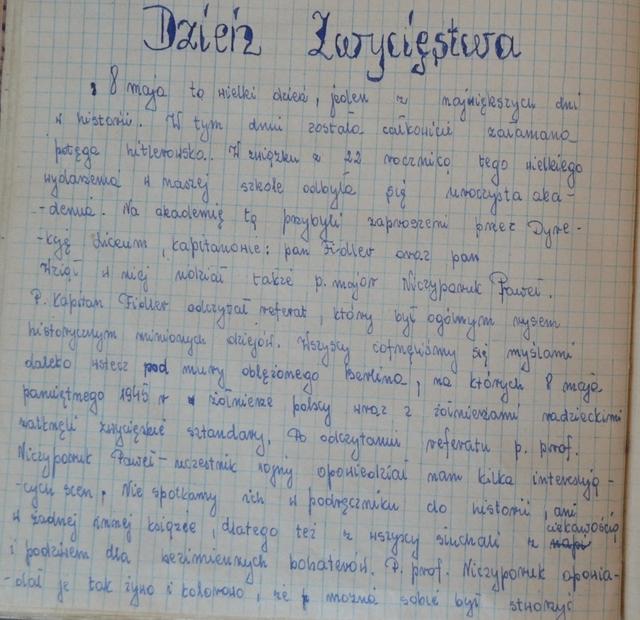 Dzień Zwycięstwa
8 maja to wielki dzień, jeden z największych dni
w historii. W tym dniu została całkowicie załamana
potęga hitlerowska. W związku z 22 rocznicą tego wielkiego
wydarzenia w naszej szkole odbyła się uroczysta aka-
-demia. Na akademię tą przybyli zaproszeni przez Dyre-
-kcję Liceum, kapitanowie: pan Fidler oraz pan
Wziął w niej udział także p. major Niczyporuk Paweł.
P. Kapitan Fidler odczytał referat, który był ogólnym rysem
historycznym minionych dziejów. Wszyscy cofnęliśmy się myślami
daleko wstecz pod mury oblężonego Berlina, na których 8 maja
pamiętnego 1945 r żołnierze polscy wraz z żołnierzami radzieckimi
zatknęli zwycięskie sztandary. Po odczytaniu referatu p. prof.
Niczyporuk Paweł - uczestnik wojny opowiedział nam kilka interesują-
-cych scen. Nie spotkamy ich w podręczniku do historii, ani
w żadnej innej książce, dlatego też wszyscy słuchali z ciekawością
i podziwem dla bezimiennych bohaterów. P. prof. Niczyporuk opowia-
-dał je tak żywo i kolorowo, że można sobie był stworzyć